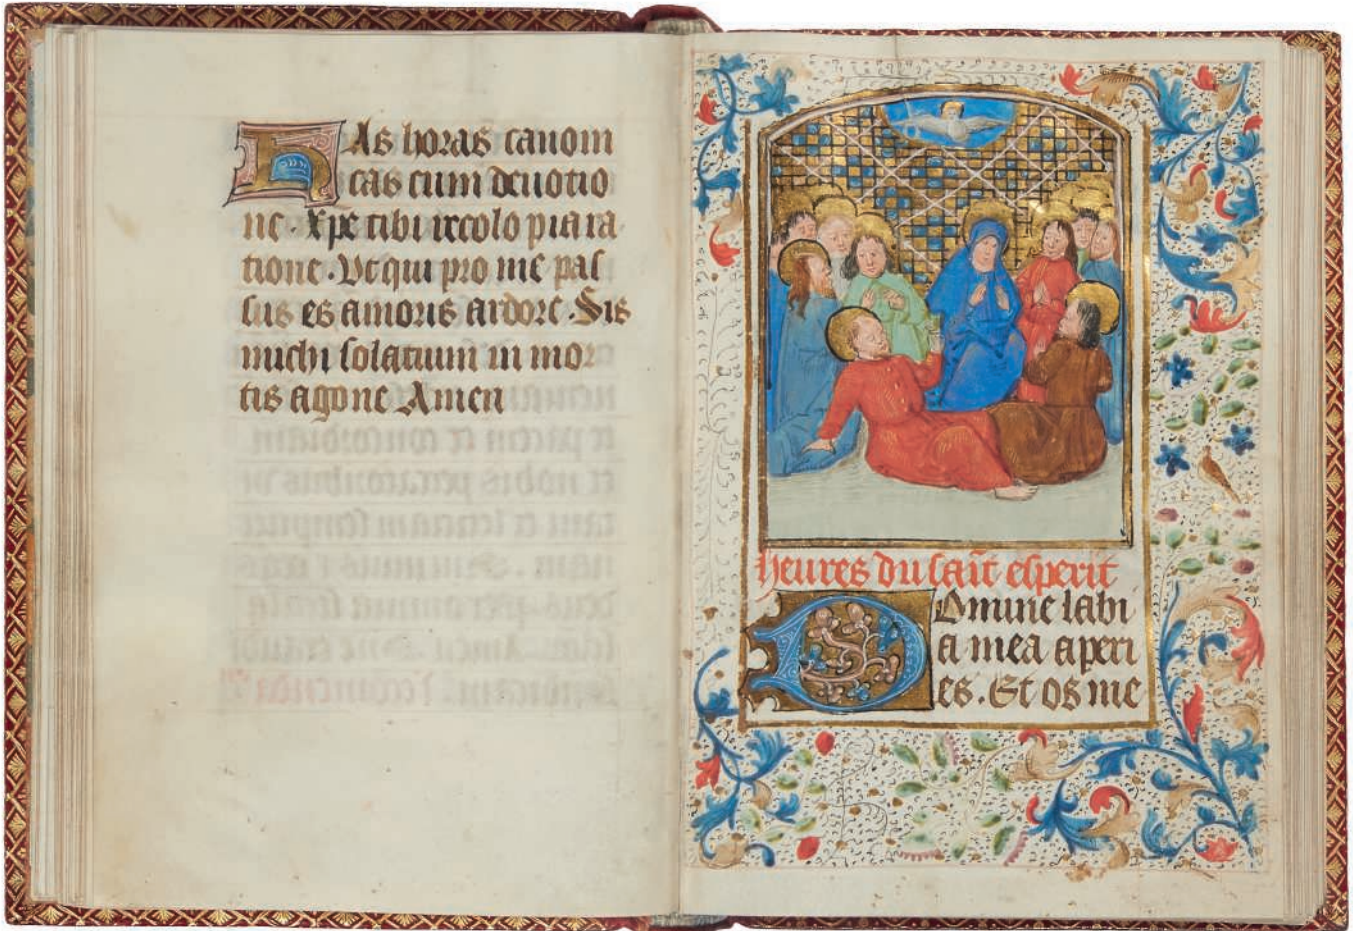 HAs horas canoni
cas cum deuotio
ne. xpe tibi recolo pia ra
tione. Vt qui pro me pas
sus es amoris ardore. Sis
michi solatium in mor
tis agone Amen
heures du saīt esperit
DOmine labi
a mea aperi
es. Et os me